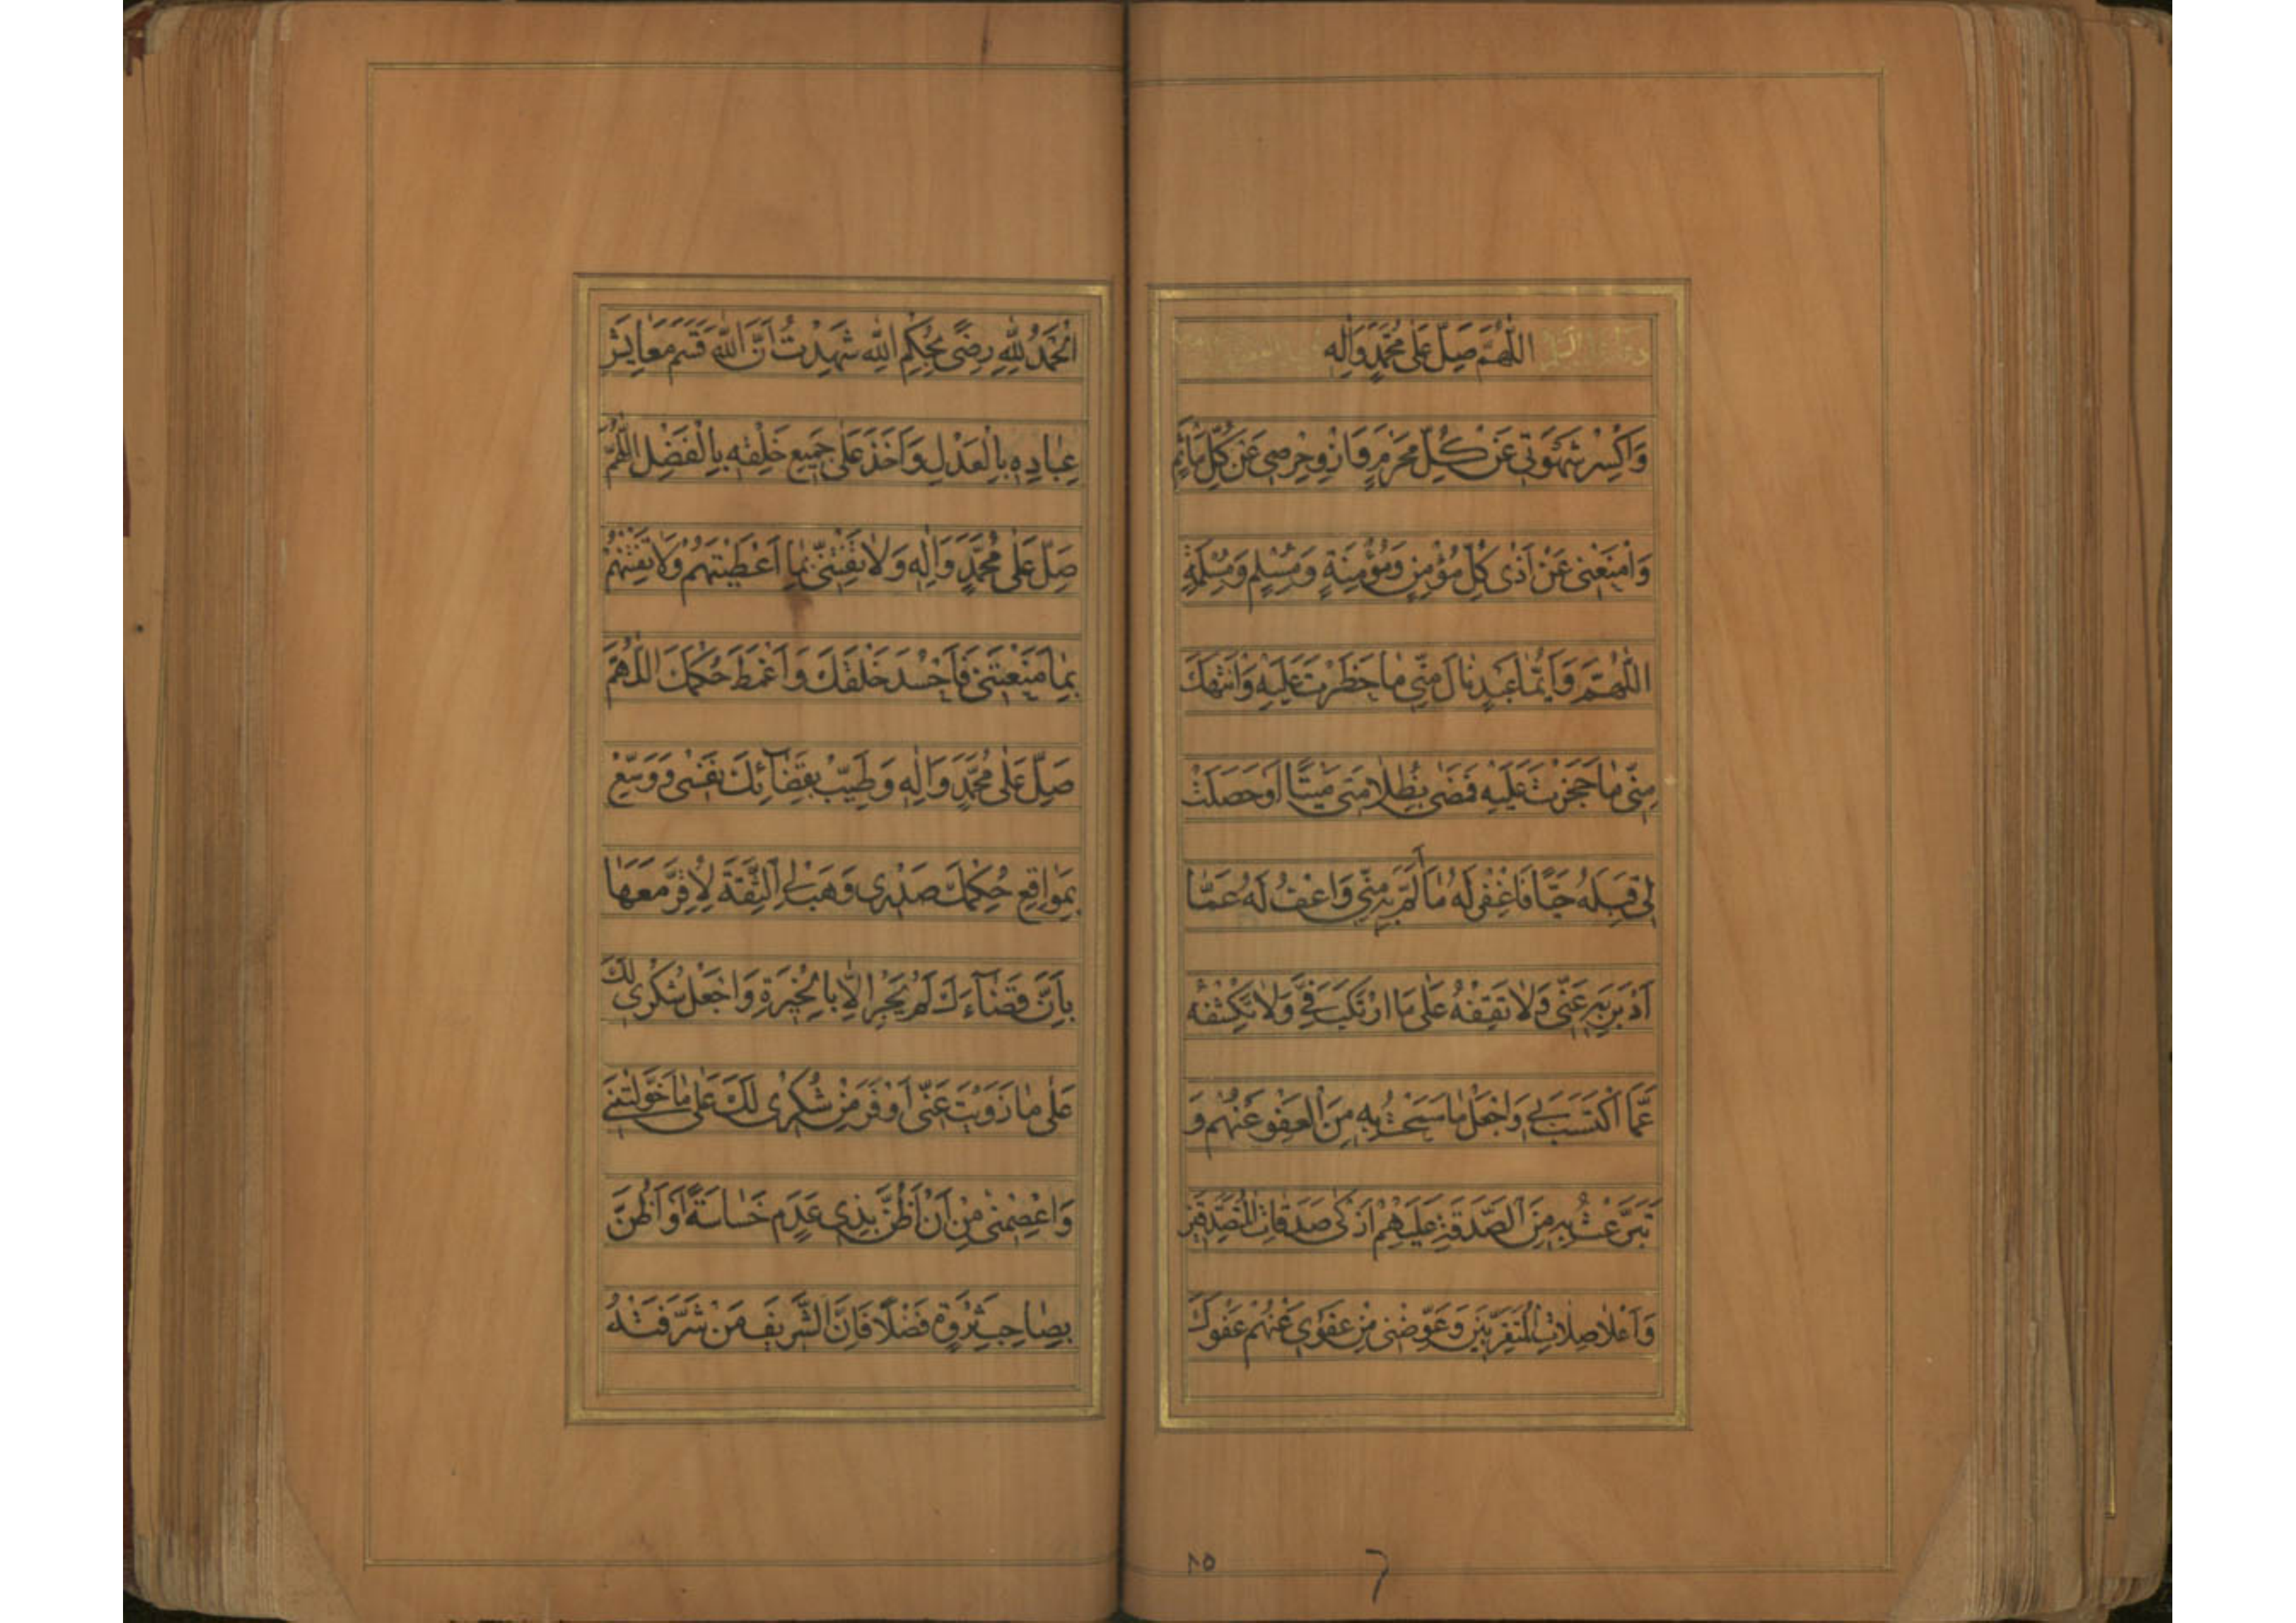 اللّٰهُمَّ صَلِّ عَلٰى مُحَمَّدٍ وَاٰلِهِ
وَاكْسِرْ شَهْوَتِي عَنْ كُلِّ مَحْرَمٍ وَازْوِ حِرْصِي عَنْ كُلِّ مَأْثَمٍ
وَامْنَعْنِي عَنْ اَذٰى كُلِّ مُؤْمِنٍ وَمُؤْمِنَةٍ وَمُسْلِمٍ وَمُسْلِمَةٍ
اللّٰهُمَّ وَاَيُّمَا عَبْدٍ نَالَ مِنِّي مَا حَظَرْتَ عَلَيْهِ وَانْتَهَكَ
مِنِّي مَا حَجَزْتَ عَلَيْهِ فَمَضٰى بِظُلَامَتِي مَيِّتًا اَوْ حَصَلَتْ
لِي قِبَلَهُ حَيًّا فَاغْفِرْ لَهُ مَا اَلَمَّ بِهِ مِنِّي وَاعْفُ لَهُ عَمَّا
اَدْبَرَ بِهِ عَنِّي وَلَا تَقِفْهُ عَلٰى مَا ارْتَكَبَ فِيَّ وَلَا تَكْشِفْهُ
عَمَّا اكْتَسَبَ بِي وَاجْعَلْ مَا سَمَحْتُ بِهِ مِنَ الْعَفْوِ عَنْهُمْ وَ
تَبَرَّعْتُ بِهِ مِنَ الصَّدَقَةِ عَلَيْهِمْ اَزْكٰى صَدَقَاتِ الْمُتَصَدِّقِينَ
وَاَعْلَا صِلَاتِ الْمُتَقَرِّبِينَ وَعَوِّضْنِي مِنْ عَفْوِي عَنْهُمْ عَفْوَكَ
٢٥
اَلْحَمْدُ لِلّٰهِ رِضًى بِحُكْمِ اللّٰهِ شَهِدْتُ اَنَّ اللّٰهَ قَسَمَ مَعَايِشَ
عِبَادِهِ بِالْعَدْلِ وَاَخَذَ عَلٰى جَمِيعِ خَلْقِهِ بِالْفَضْلِ اللّٰهُمَّ
صَلِّ عَلٰى مُحَمَّدٍ وَاٰلِهِ وَلَا تَفْتِنِّي بِمَا اَعْطَيْتَهُمْ وَلَا تَفْتِنْهُمْ
بِمَا مَنَعْتَنِي فَاَحْسُدَ خَلْقَكَ وَاَغْمَطَ حُكْمَكَ اللّٰهُمَّ
صَلِّ عَلٰى مُحَمَّدٍ وَاٰلِهِ وَطَيِّبْ بِقَضَائِكَ نَفْسِي وَوَسِّعْ
بِمَوَاقِعِ حُكْمِكَ صَدْرِي وَهَبْ لِيَ الثِّقَةَ لِاُقِرَّ مَعَهَا
بِاَنَّ قَضَاءَكَ لَمْ يَجْرِ اِلَّا بِالْخِيَرَةِ وَاجْعَلْ شُكْرِي لَكَ
عَلٰى مَا زَوَيْتَ عَنِّي اَوْفَرَ مِنْ شُكْرِي لَكَ عَلٰى مَا خَوَّلْتَنِي
وَاعْصِمْنِي مِنْ اَنْ اَظُنَّ بِذِي عَدَمٍ خَسَاسَةً اَوْ اَظُنَّ
بِصَاحِبِ ثَرْوَةٍ فَضْلًا فَاِنَّ الشَّرِيفَ مَنْ شَرَّفَتْهُ